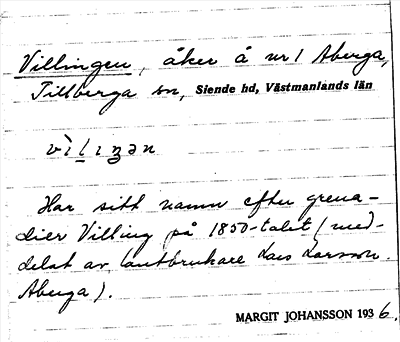 Villingen, åker å nr 1 Aberga,
Tillberga sn, Siende hd, Västmanlands län
vìlıŋən
Har sitt namn efter grena-
dier Villing på 1850-talet (med-
delat av lantbrukare Lars Larsson
Aberga).
MARGIT JOHANSSON 1936.